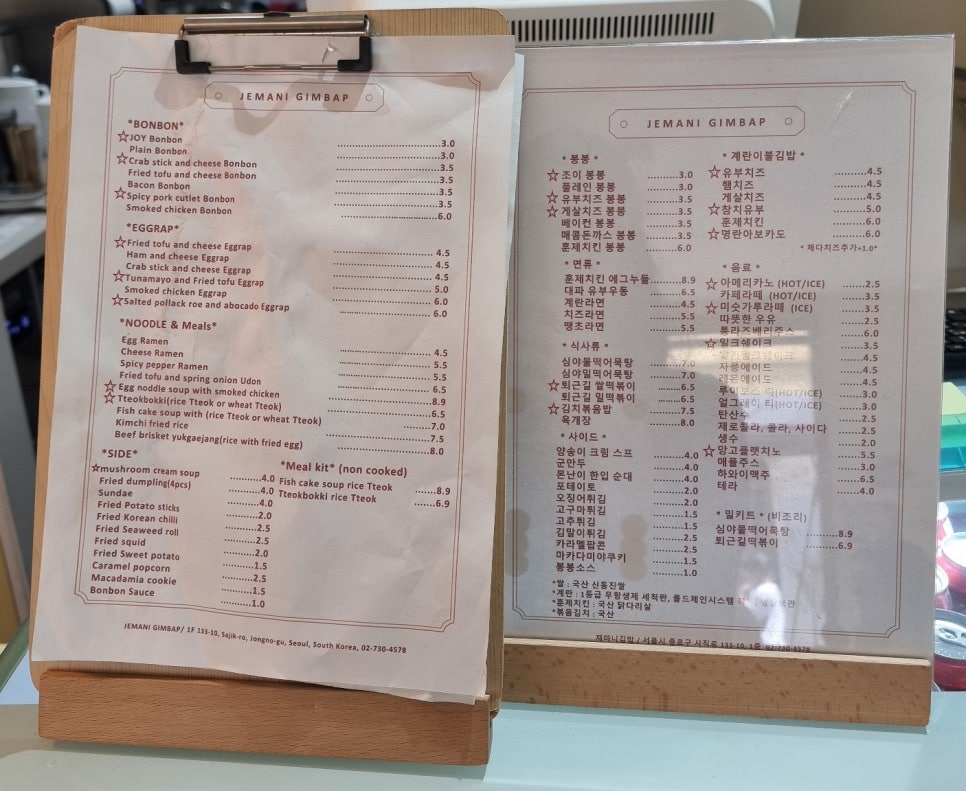 JEMANI GIMBAP
*BONBON*
☆JOY Bonbon ..........3.0
Plain Bonbon ..........3.0
☆Crab stick and cheese Bonbon ..........3.5
Fried tofu and cheese Bonbon ..........3.5
Bacon Bonbon ..........3.5
☆Spicy pork cutlet Bonbon ..........3.5
Smoked chicken Bonbon ..........6.0
*EGGRAP*
☆Fried tofu and cheese Eggrap .......... 4.5
Ham and cheese Eggrap .......... 4.5
Crab stick and cheese Eggrap .......... 4.5
☆Tunamayo and Fried tofu Eggrap .......... 5.0
Smoked chicken Eggrap .......... 6.0
☆Salted pollack roe and abocado Eggrap .......... 6.0
*NOODLE & Meals*
Egg Ramen .......... 4.5
Cheese Ramen .......... 5.5
Spicy pepper Ramen .......... 5.5
Fried tofu and spring onion Udon .......... 6.5
☆Egg noddle soup with smoked chicken ..........8.9
☆Tteokbokki(rice Tteok or wheat Tteok) ..........6.5
Fish cake soup with (rice Tteok or wheat Tteok) ..........7.0
Kimchi fried rice ..........7.5
Beef brisket yukgaejang(rice with fried egg) ..........8.0
*SIDE*
☆mushroom cream soup ..........4.0
Fried dumpling(4pcs) ..........4.0
Sundae ..........4.0
Fried Potato sticks ..........2.0
Fried Korean chilli ..........2.5
Fried Seaweed roll
Fried squid ..........2.0
Fried Sweet potato ..........1.5
Caramel popcorn ..........2.5
Macadamia cookie ..........1.5
Bonbon Sauce ..........1.0
*Meal kit* (non cooked)
Fish cake soup rice Tteok ......8.9
Tteokbokki rice Tteok ......6.9
JEMANI GIMBAP/ 1F 133-10, Sajik-ro, Jongno-gu, Seoul, South Korea, 02-730-4578
JEMANI GIMBAP
* 봉봉 *
☆조이 봉봉 ..........3.0
플레인 봉봉 ..........3.0
☆유부치즈 봉봉 ..........3.5
☆게살치즈 봉봉 ..........3.5
베이컨 봉봉 ..........3.5
매콤돈까스 봉봉 ..........3.5
훈제치킨 봉봉 ..........6.0
* 면류 *
훈제치킨 에그누들......8.9
대파 유부우동 ..........6.5
계란라면 ..........4.5
치즈라면 ..........5.5
땡초라면 ..........5.5
* 식사류 *
심야쌀떡어묵탕 ..........7.0
심야밀떡어묵탕 ..........7.0
☆퇴근길 쌀떡볶이 ..........6.5
퇴근길 밀떡볶이 ..........6.5
☆김치볶음밥 ..........7.5
육개장 ..........8.0
* 사이드 *
양송이 크림 스프 ..........4.0
군만두 ..........4.0
몬난이 한입 순대 ..........4.0
포테이토 ..........2.0
오징어튀김 ..........2.0
고구마튀김 ..........1.5
고추튀김 ..........1.5
김말이튀김 ..........2.5
카라멜팝콘 ..........2.5
마카다미야쿠키 ..........1.5
봉봉소스 ..........1.0
* 계란이불김밥 *
☆유부치즈 ..........4.5
햄치즈 ..........4.5
게살치즈 ..........4.5
☆참치유부 ..........5.0
훈제치킨 ..........6.0
☆명란아보카도 ..........6.0
* 체다치즈추가+1.0*
* 음료 *
☆아메리카노 (HOT/ICE) ..........2.5
카페라떼 (HOT/ICE) ..........3.5
☆미숫가루라떼 (ICE) ..........3.5
따뜻한 우유 ..........2.5
..........6.0
☆밀크쉐이크 ..........3.5
..........4.5
자몽에이드 ..........4.5
레몬에이드 ..........4.5
루이보스 티(HOT/ICE)
얼그레이 티(HOT/ICE) ..........2.5
탄산수 ..........2.5
제로콜라, 콜라, 사이다 ..........2.5
생수 ..........2.0
☆망고플랫치노 ..........5.5
애플주스 ..........3.0
하와이맥주 ..........6.5
테라 ..........4.0
* 밀키트 * (비조리)
심야쌀떡어묵탕 ..........8.9
퇴근길떡볶이 ..........6.9
*쌀 : 국산 신동진쌀
*계란 : 1등급 무항생제 세척란, 콜드체인시스템
*훈제치킨 : 국산 닭다리살
*볶음김치 : 국산
제마니김밥 / 서울시 종로구 사직로 133-10, 1층 02-730-4578